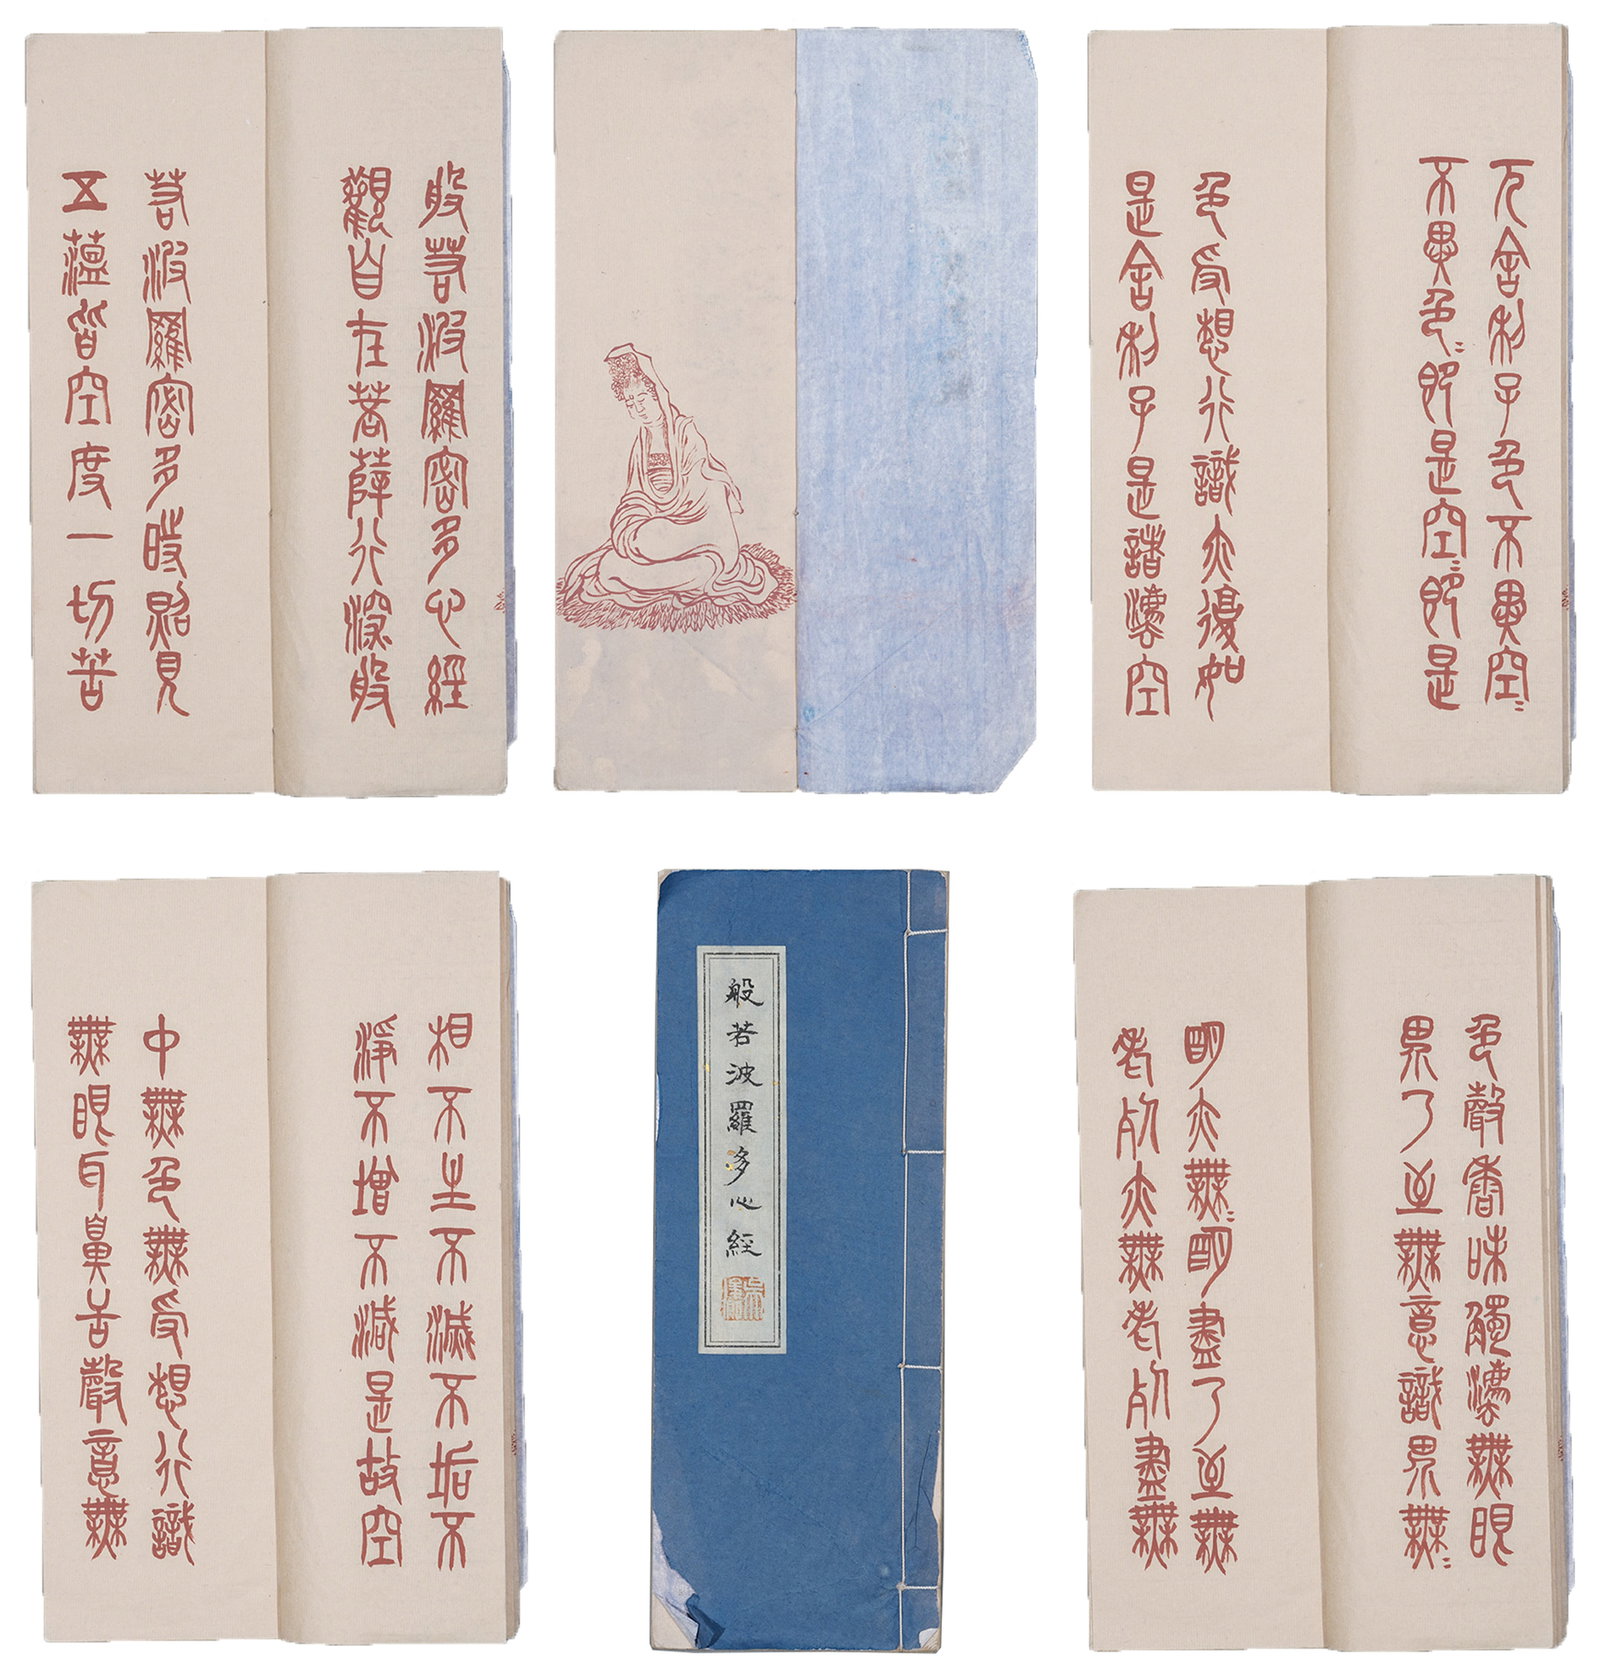 般若波羅密多心經
觀自在菩薩行深般
若波羅密多時照見
五蘊皆空度一切苦
厄舍利子色不異空〻
不異色〻即是空〻即是
色受想行識亦復如
是舍利子是諸灋空
相不生不滅不垢不
淨不增不減是故空
中無色無受想行識
無眼耳鼻舌聲意無
般若波羅多心經
色聲香味觸灋無眼
界乃至無意識界無〻
明亦無〻明盡乃至無
老死亦無老死盡無